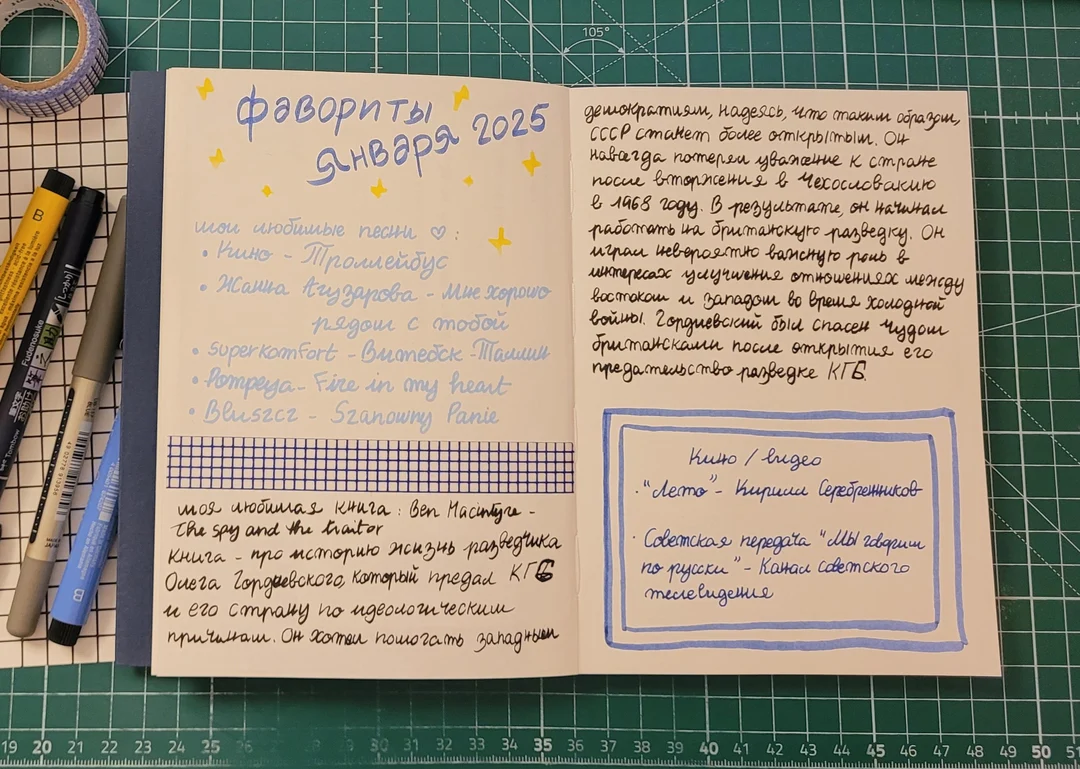 фавориты
января 2025
мои любимые песни ♡ :
• Кино – Троллейбус
• Жанна Агузарова – Мне хорошо
рядом с тобой
• superkomfort – Витебск – Таллин
• Pompeya – Fire in my heart
• Bluszcz – Szanowny Panie
моя любимая книга : Ben Macintyre –
The spy and the traitor
Книга – про историю жизнь разведчика
Олега Гордиевского, который предал КГБ
и его страну по идеологическим
причинам. Он хотел помогать западным
демократиям, надеясь, что таким образом,
СССР станет более открытым. Он
навсегда потерял уважение к стране
после вторжения в Чехословакию
в 1968 году. В результате, он начинал
работать на британскую разведку. Он
играл невероятно важную роль в
интересах улучшения отношениях между
востоком и западом во время холодной
войны. Гордиевский был спасен чудом
британсками после открытия его
предательство разведке КГБ.
Кино / видео
· "Лето" – Кирилл Серебренников
· Советская передача "Мы говорим
по русски" – Канал советского
телевидения
105°
19 20 21 22 23 24 25 26 27 28 29 30 31 32 33 34 35 36 37 38 39 40 41 42 43 44 45 46 47 48 49 50 51
B
Fudenosuke
Tombow
B